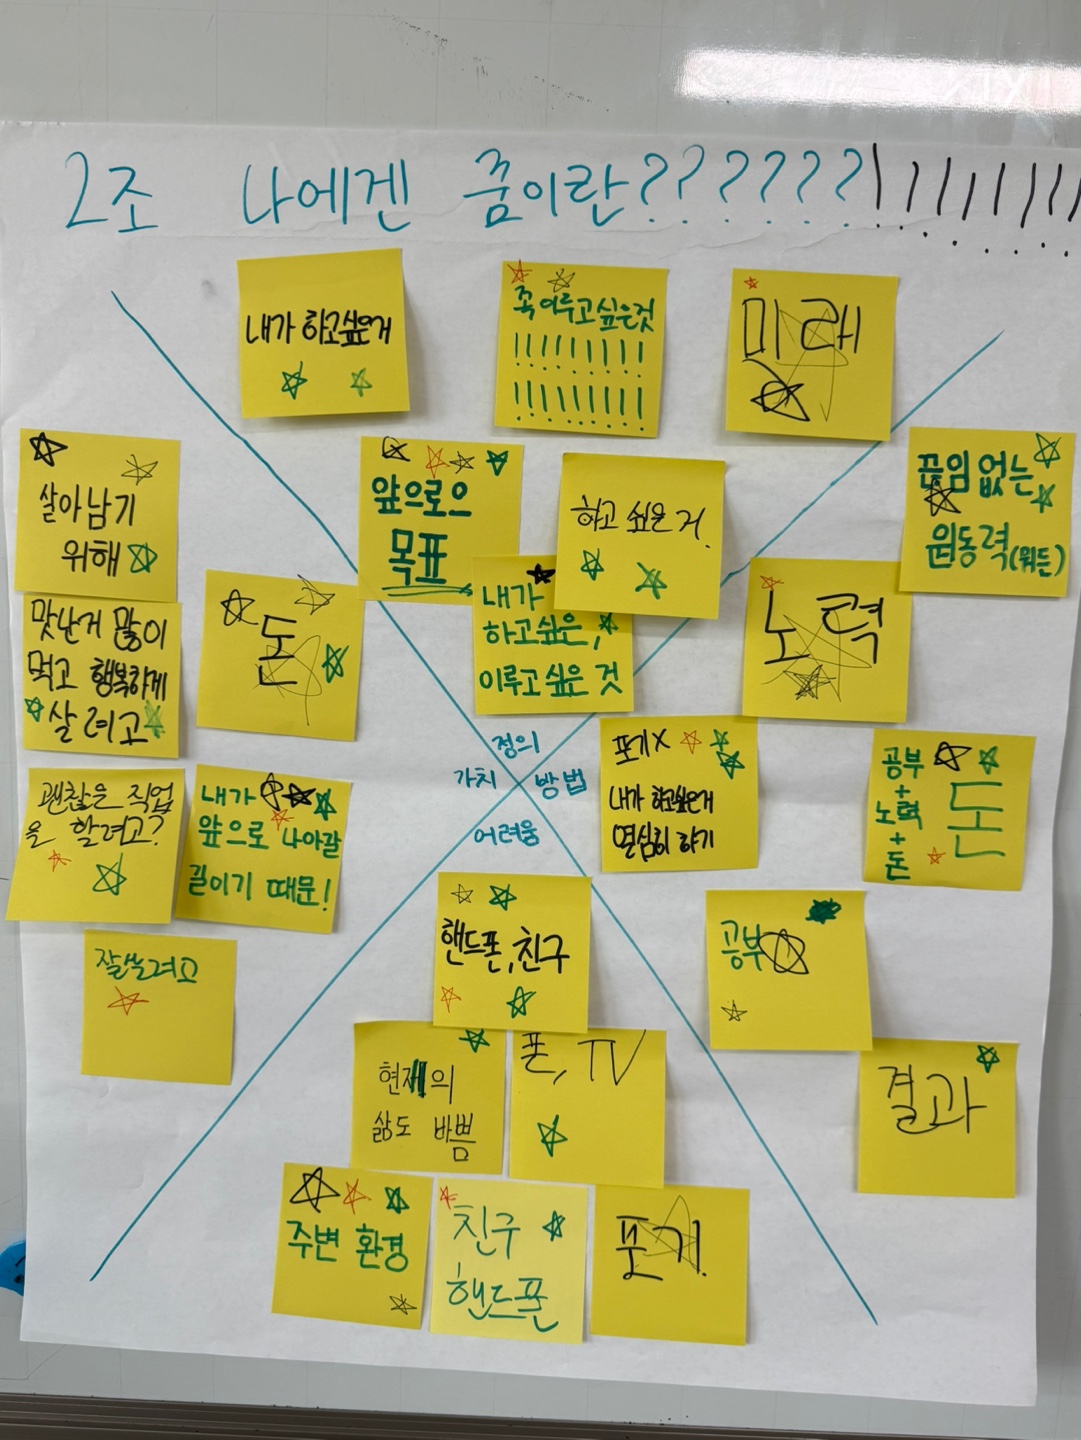 2조 나에겐 줌이란??????!!!!!!!!
내가 하고싶은거
꼭 이루고싶은것
!!!!!!!!!
!!!!!!!!!
미래
앞으로으
목표
하고 싶은 거.
내가
하고싶은,
이루고싶은 것
살아남기
위해
맛난거 많이
먹고 행복하게
살려고
돈
괜찮은 직업
을 할려고?
내가
앞으로 나아갈
길이기 때문!
잘쓸려고
정의
가치
방법
어려움
끊임 없는
원동력(뭐든)
노력
포기X
내가 하고싶은거
열심히 하기
공부
+
노력
+
돈
공부
결과
핸드폰, 친구
현재의
삶도 바쁨
폰, TV
주변 환경
친구
핸드폰
포기.